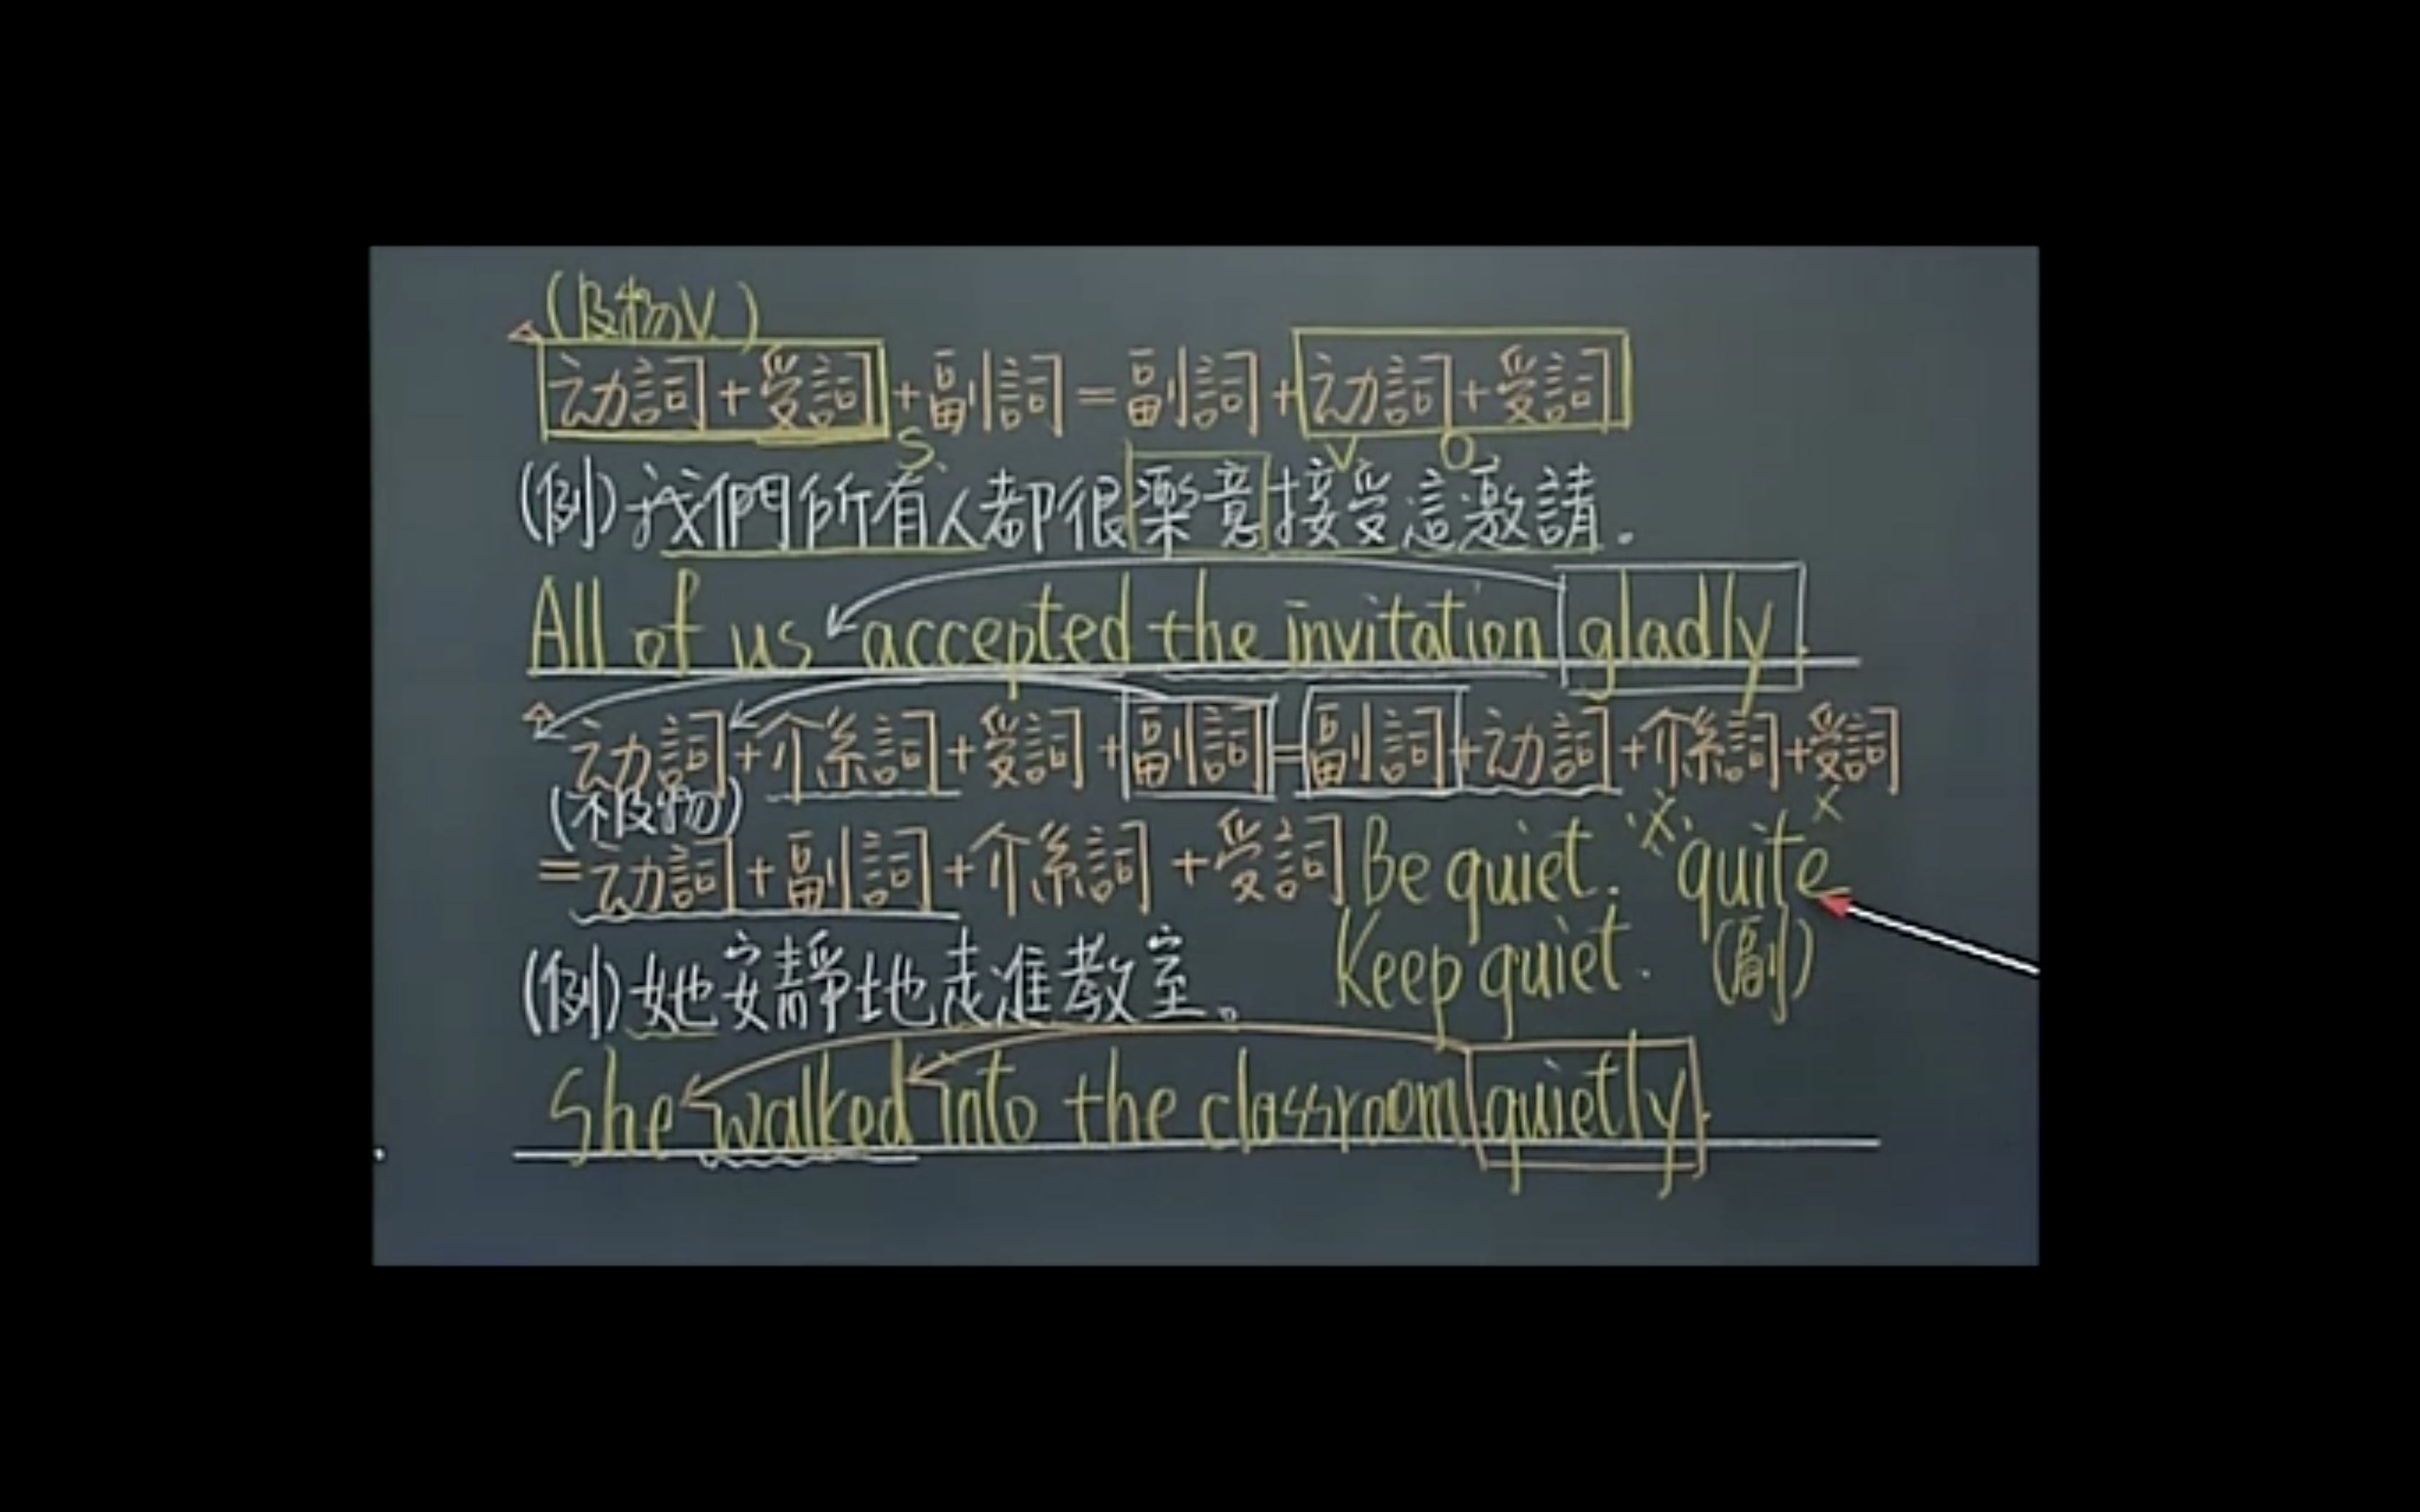 (及物V.)
动詞+受詞+副詞=副詞+动詞+受詞
S. V O
(例)我們所有人都很樂意接受這邀請.
All of us accepted the invitation gladly.
动詞+介系詞+受詞+副詞=副詞+动詞+介系詞+受詞
(不及物)
=动詞+副詞+介系詞+受詞 Be quiet. ※ quite x
(例)她安靜地走進教室。 Keep quiet. (副)
She walked into the classroom quietly.